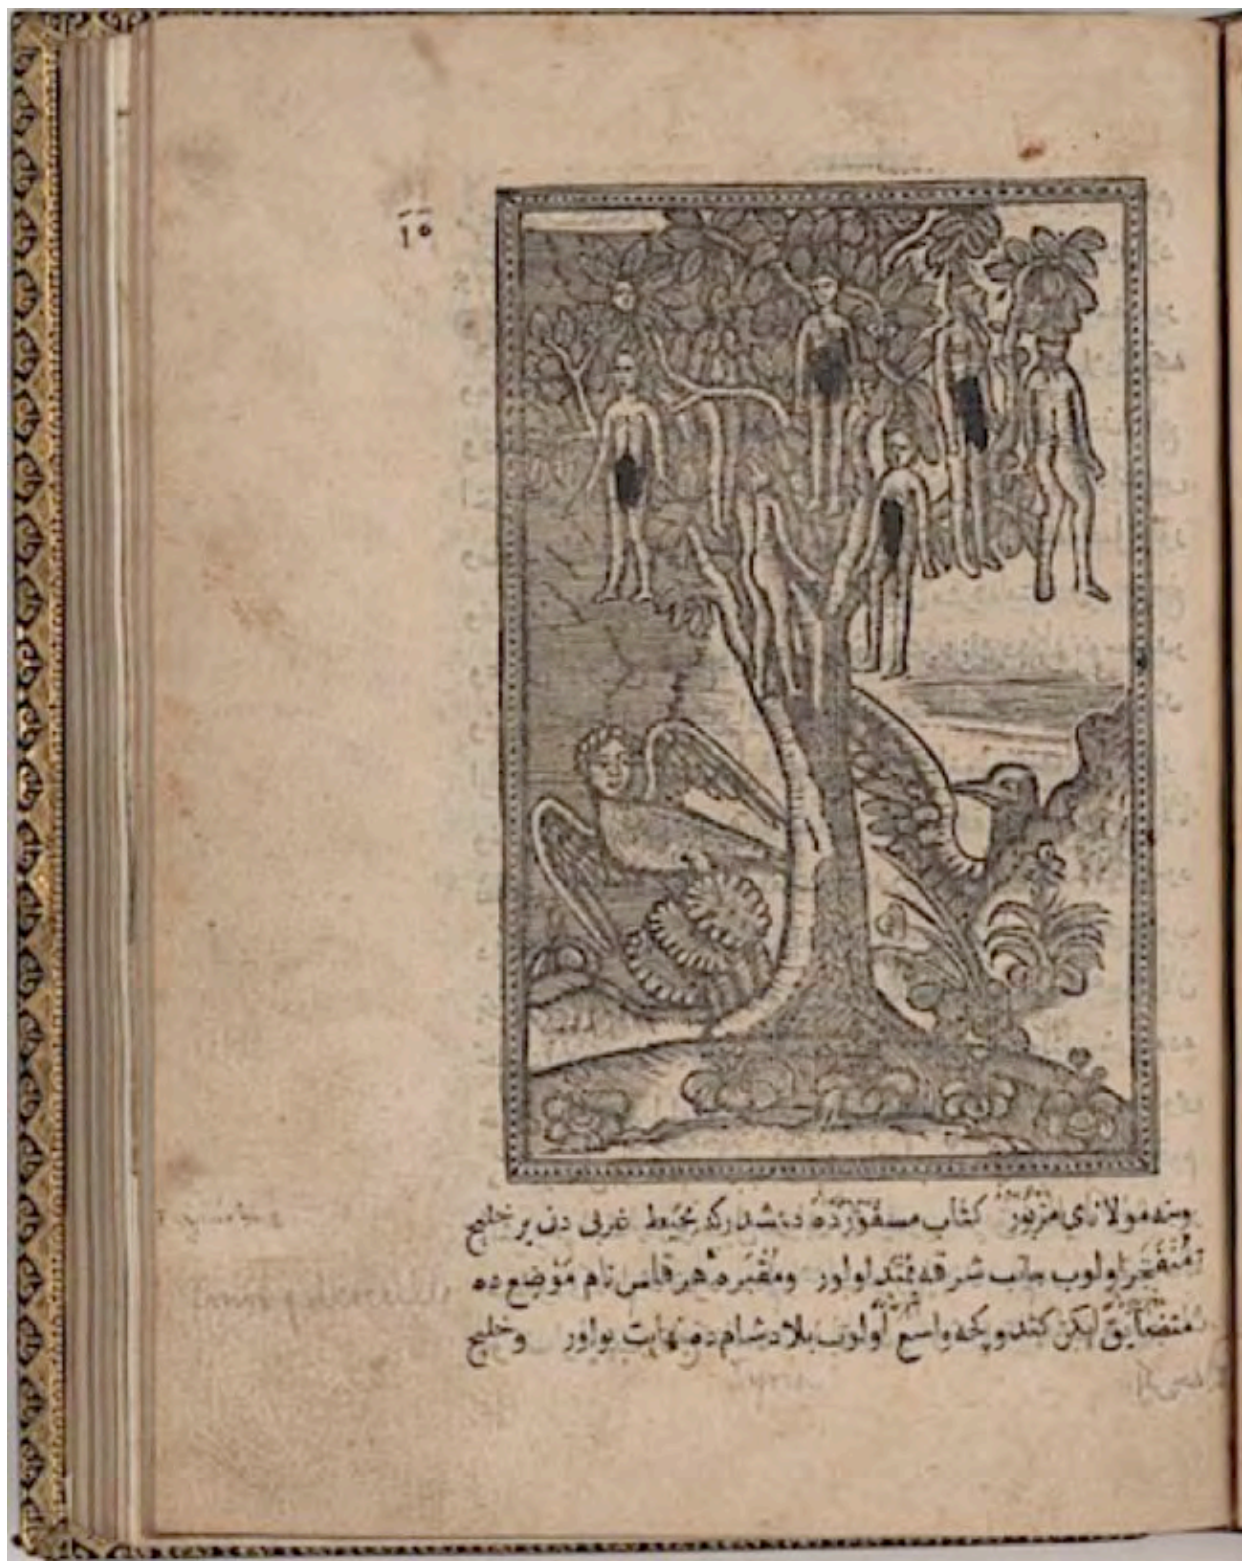 ١٥
ينه مولاناى مزبور كتاب مسفورده دنشدركه محيط غربى دن بر خليج
متفجر اولوب جانب شرقه ممتد اولور ومقبره هرقلس نام موضع ده
متضايق ليكن كتدوكجه واسع اولوب بلاد شام ده نهايت بولور وخليج